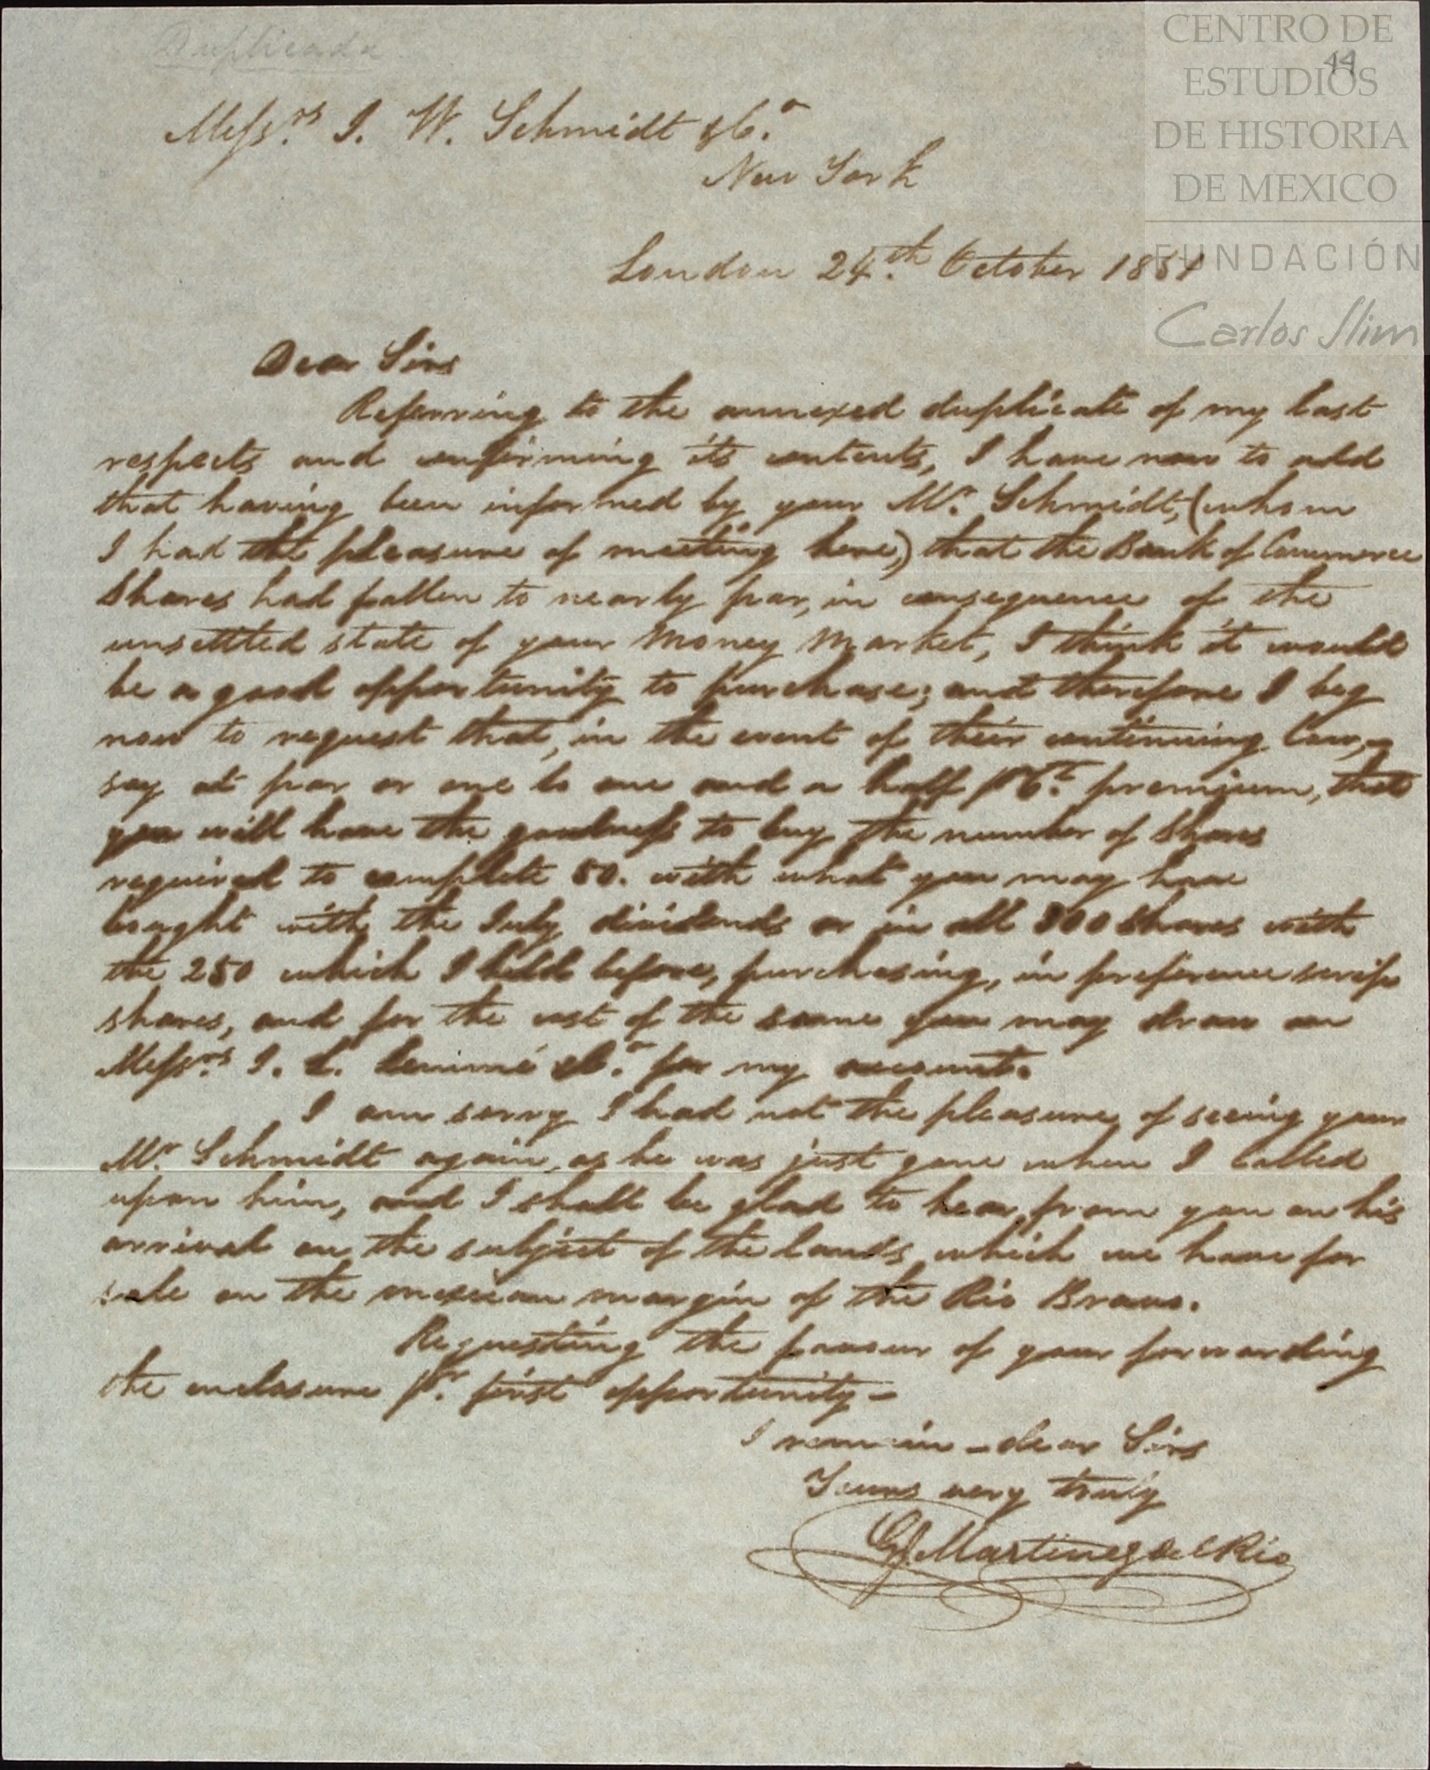 Duplicada
44
CENTRO DE
ESTUDIOS
DE HISTORIA
DE MEXICO
FUNDACIÓN
Carlos Slim
Messrs. J. W. Schmidt & Co.
New York
London 24th. October 1851
Dear Sirs
Referring to the annexed duplicate of my last
respects and confirming its contents, I have now to add
that having been informed by your Mr. Schmidt, (whom
I had the pleasure of meeting here,) that the Bank of Commerce
Shares had fallen to nearly par, in consequence of the
unsettled state of your Money Market, I think it would
be a good opportunity to purchase; and therefore I beg
now to request that, in the event of their continuing low,
say at par or one to one and a half p Ct. premium, that
you will have the goodness to buy the number of Shares
required to complete 50. with what you may have
bought with the July dividends or in all 300 Shares with
the 250 which I held before, purchasing, in preference scrip
shares, and for the cost of the same you may draw on
Messrs. J. L. Lemmé & Co. for my account.
I am sorry I had not the pleasure of seeing your
Mr. Schmidt again, as he was just gone when I called
upon him, and I shall be glad to hear from you on his
arrival on the subject of the lands which we have for
sale on the mexican margin of the Rio Bravo.
Requesting the favour of your forwarding
the enclosure pr. first opportunity –
I remain – dear Sirs
Yours very truly
G J. Martinez del Rio